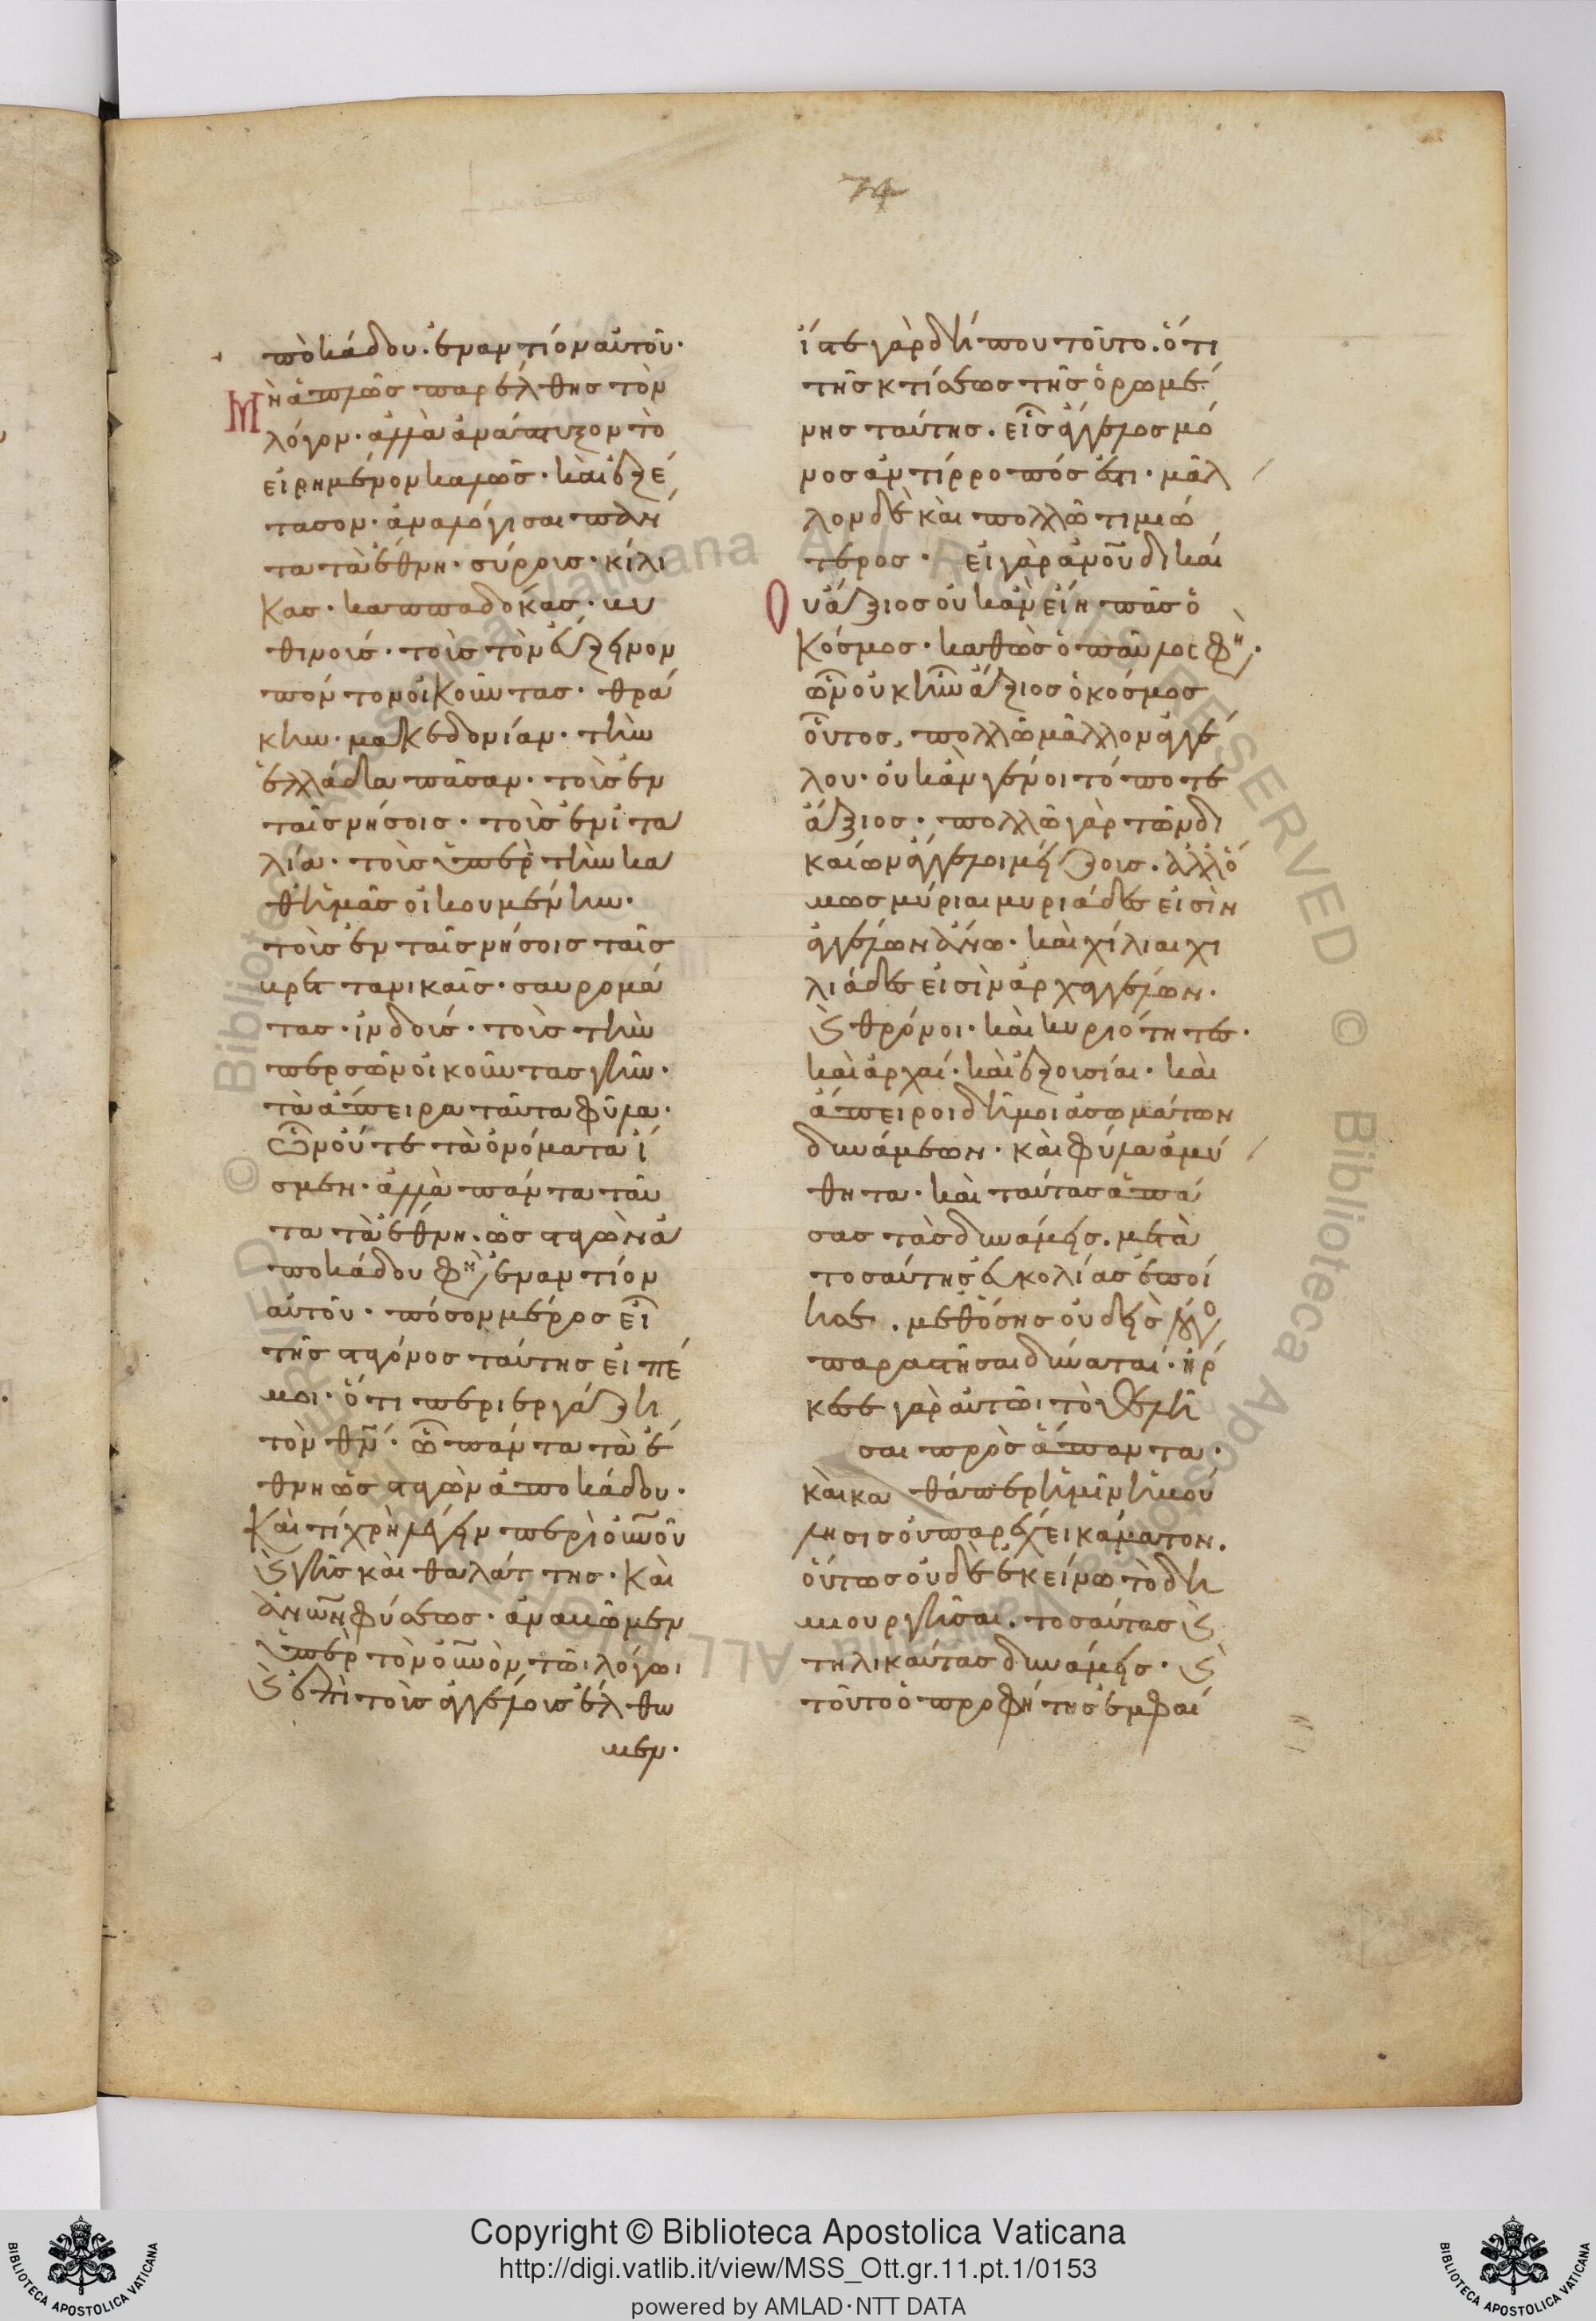 74
πὸ κάδου. ἐναντίον αὐτοῦ·
Μὴ ἁπλῶς παρέλθης τὸν
λόγον· ἀλλὰ ἀνάπτυξον τὸ
εἰρημένον καλῶς· καὶ ἐξέ
τασον· ἀναλόγισαι πάν
τα τὰ ἔθνη· σύρους· κίλι
κας· καππαδόκας· βι
θυνούς· τοὺς τὸν εὔξεινον
πόντον οἰκοῦντας· θρά
κην· μακεδονίαν· τὴν
ἑλλάδα πᾶσαν· τοὺς ἐν
ταῖς νήσοις· τοὺς ἐν ἰτα
λία· τοὺς ὑπὲρ τὴν κα
θ' ἡμᾶς οἰκουμένην·
τοὺς ἐν ταῖς νήσοις ταῖς
βρεττανικαῖς· σαυρομά
τας· ἰνδούς· τοὺς τὴν
περσῶν οἰκοῦντας γῆν·
τὰ ἄπειρα ταῦτα φῦλα·
ὧν οὔτε τὰ ὀνόματα ἴ
σμεν· ἀλλὰ πάντα ταῦ
τα τὰ ἔθνη· ὡς σταγὼν ἀ
πὸ κάδου φη ἐναντίον
αὐτοῦ· πόσον μέρος εἶ
τῆς σταγόνος ταύτης εἰπέ
μοι· ὅτι περιεργάζη
τὸν θν· ὧ πάντα τὰ ἔ
θνη ὡς σταγὼν ἀπὸ κάδου·
Καὶ τί χρὴ λέγειν περὶ οὐνοῦ
καὶ γῆς καὶ θαλάττης· καὶ
ἀνων φύσεως· ἀναβῶμεν
ὑπὲρ τὸν οὐνὸν τῶι λόγωι
καὶ ἐπὶ τοὺς ἀγγέλους ἔλθω
μεν·
ἴστε γὰρ δήπου τοῦτο. ὅτι
τῆς κτίσεως τῆς ὁρωμέ
νης ταύτης. εἷς ἄγγελος μό
νος ἀντίρροπός ἐστι· μᾶλ
λον δὲ καὶ πολλῶ τιμιώ
τερος· εἰ γὰρ ἀνοῦ δικαί
Ου ἄξιος οὐκ ἂν εἴη πᾶς ὁ
κόσμος· καθὼς ὁ παῦλος φη·
ὧν οὐκ ἦν ἄξιος ὁ κόσμος
οὗτος, πολλῶ μᾶλλον ἀγγέ
λου· οὐκ ἂν γένοιτό ποτε
ἄξιος· πολλῶ γὰρ τῶν δι
καίων ἄγγελοι μείζους. ἀλλ' ὅ
μως μύριαι μυριάδες εἰσὶν
ἀγγέλων ἄνω· καὶ χίλιαι χι
λιάδες εἰσὶν ἀρχαγγέλων·
καὶ θρόνοι· καὶ κυριότητες·
καὶ ἀρχαί· καὶ ἐξουσίαι· καὶ
ἄπειροι δῆμοι ἀσωμάτων
δυνάμεων· καὶ φῦλα ἀμύ
θητα· καὶ ταύτας ἁπά
σας τὰς δυνάμεις. μετὰ
τοσαύτης εὐκολίας ἐποί
ησε. μεθ' ὅσης οὐδεὶς λόγο
παραστῆσαι δύναται· ἤρ
κεσε γὰρ αὐτῶι τὸ θελῆ
σαι πρὸς ἅπαντα·
καὶ καθάπερ ἡμῖν ἡ βού
λησις οὐ παρέχει κάματον.
οὕτως οὐδὲ ἐκείνω τὸ δη
μιουργῆσαι. τοσαύτας καὶ
τηλικαύτας δυνάμεις· καὶ
τοῦτο ὁ προφήτης ἐμφαί
Copyright © Biblioteca Apostolica Vaticana
http://digi.vatlib.it/view/MSS_Ott.gr.11.pt.1/0153
powered by AMLAD·NTT DATA